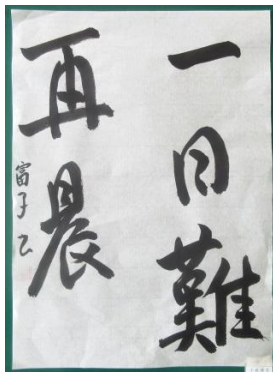 一日難
再晨
富子 乙